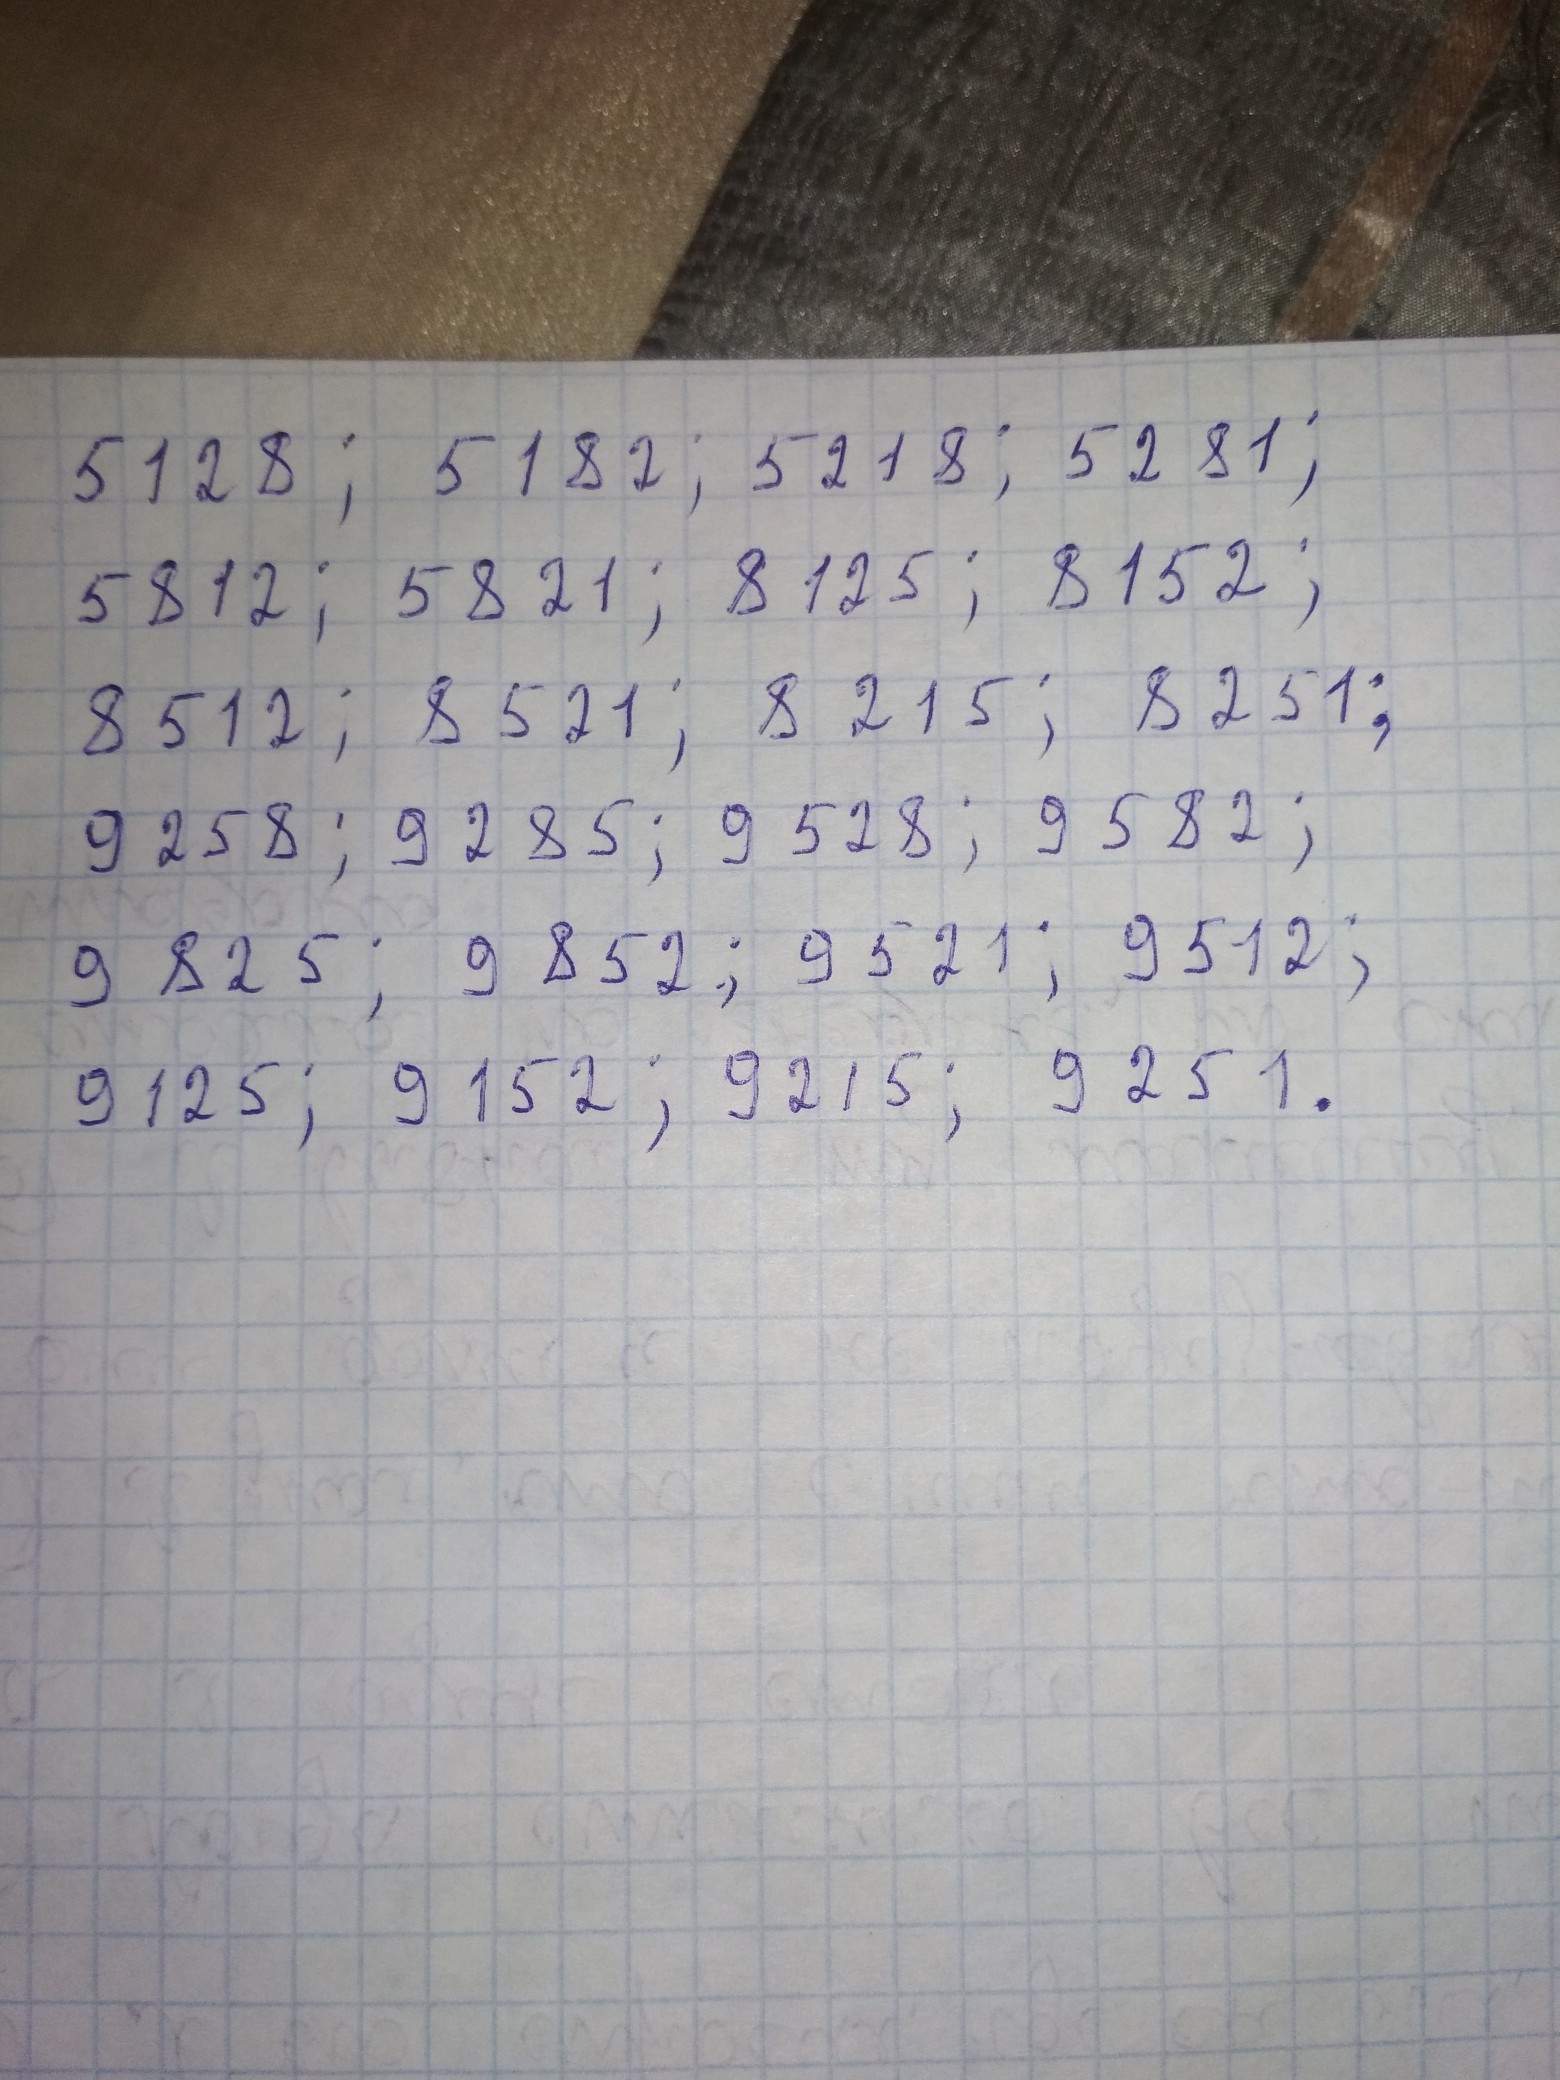 5128; 5182; 5218; 5281;
5812; 5821; 8125; 8152;
8512; 8521; 8215; 8251;
9258; 9285; 9528; 9582;
9825; 9852; 9521; 9512;
9125; 9152; 9215; 9251.